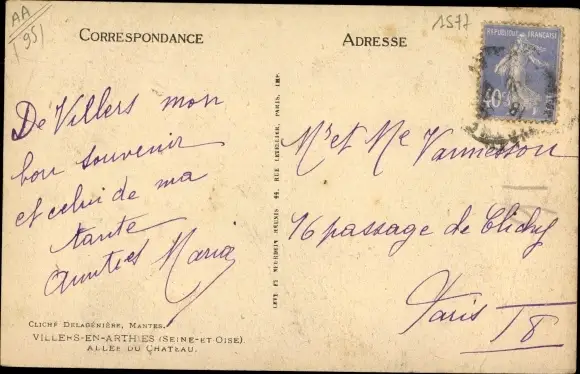 AA
95
1577
CORRESPONDANCE
ADRESSE
REPUBLIQUE FRANÇAISE
40c
De Villers mon
bon souvenir
et celui de ma
tante
Amitiés Maria
Mr et Me Vannesson
16 passage de Clichy
Paris 18
LEVY ET NEURDEIN RÉUNIS 44, RUE LETELLIER, PARIS, IMP.
CLICHÉ DELAGÉNIÈRE, MANTES.
VILLERS-EN-ARTHIES (SEINE-ET OISE)
ALLÉE DU CHATEAU.